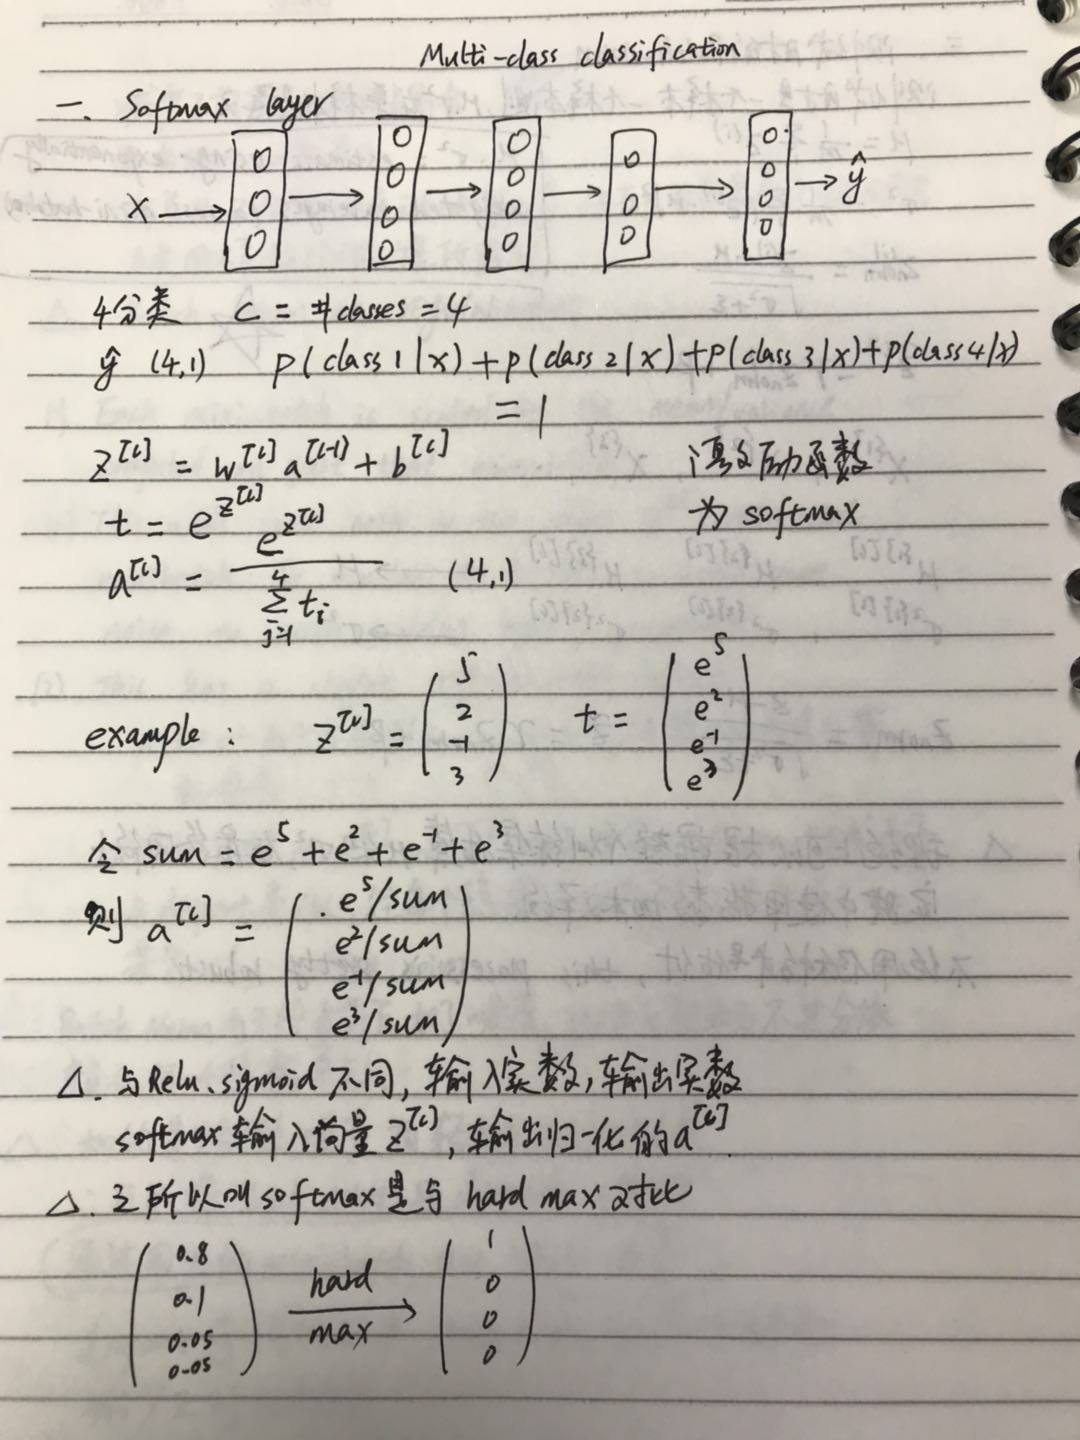 Multi-class classification
一. Softmax layer
X → → → → → ŷ
4分类 C = #classes = 4
ŷ (4,1) P(class 1|x) + P(class 2|x) + P(class 3|x) + P(class 4|x)
= 1
z^[L] = w^[L] a^[L-1] + b^[L] 激励函数
t = e^z^[L] 为 softmax
a^[L] = e^z^[L] / ∑_{j=1}^{4} t_i (4,1)
example: z^[L] = (5 2 -1 3) t = (e^5 e^2 e^-1 e^3)
令 sum = e^5 + e^2 + e^-1 + e^3
则 a^[L] = (e^5/sum e^2/sum e^-1/sum e^3/sum)
△. 与Relu、sigmoid 不同, 输入实数, 输出实数
softmax 输入向量 z^[L], 输出归一化的a^[L]
△. 之所以叫 softmax 是与 hard max 对比
(0.8 0.1 0.05 0.05) hard max → (1 0 0 0)